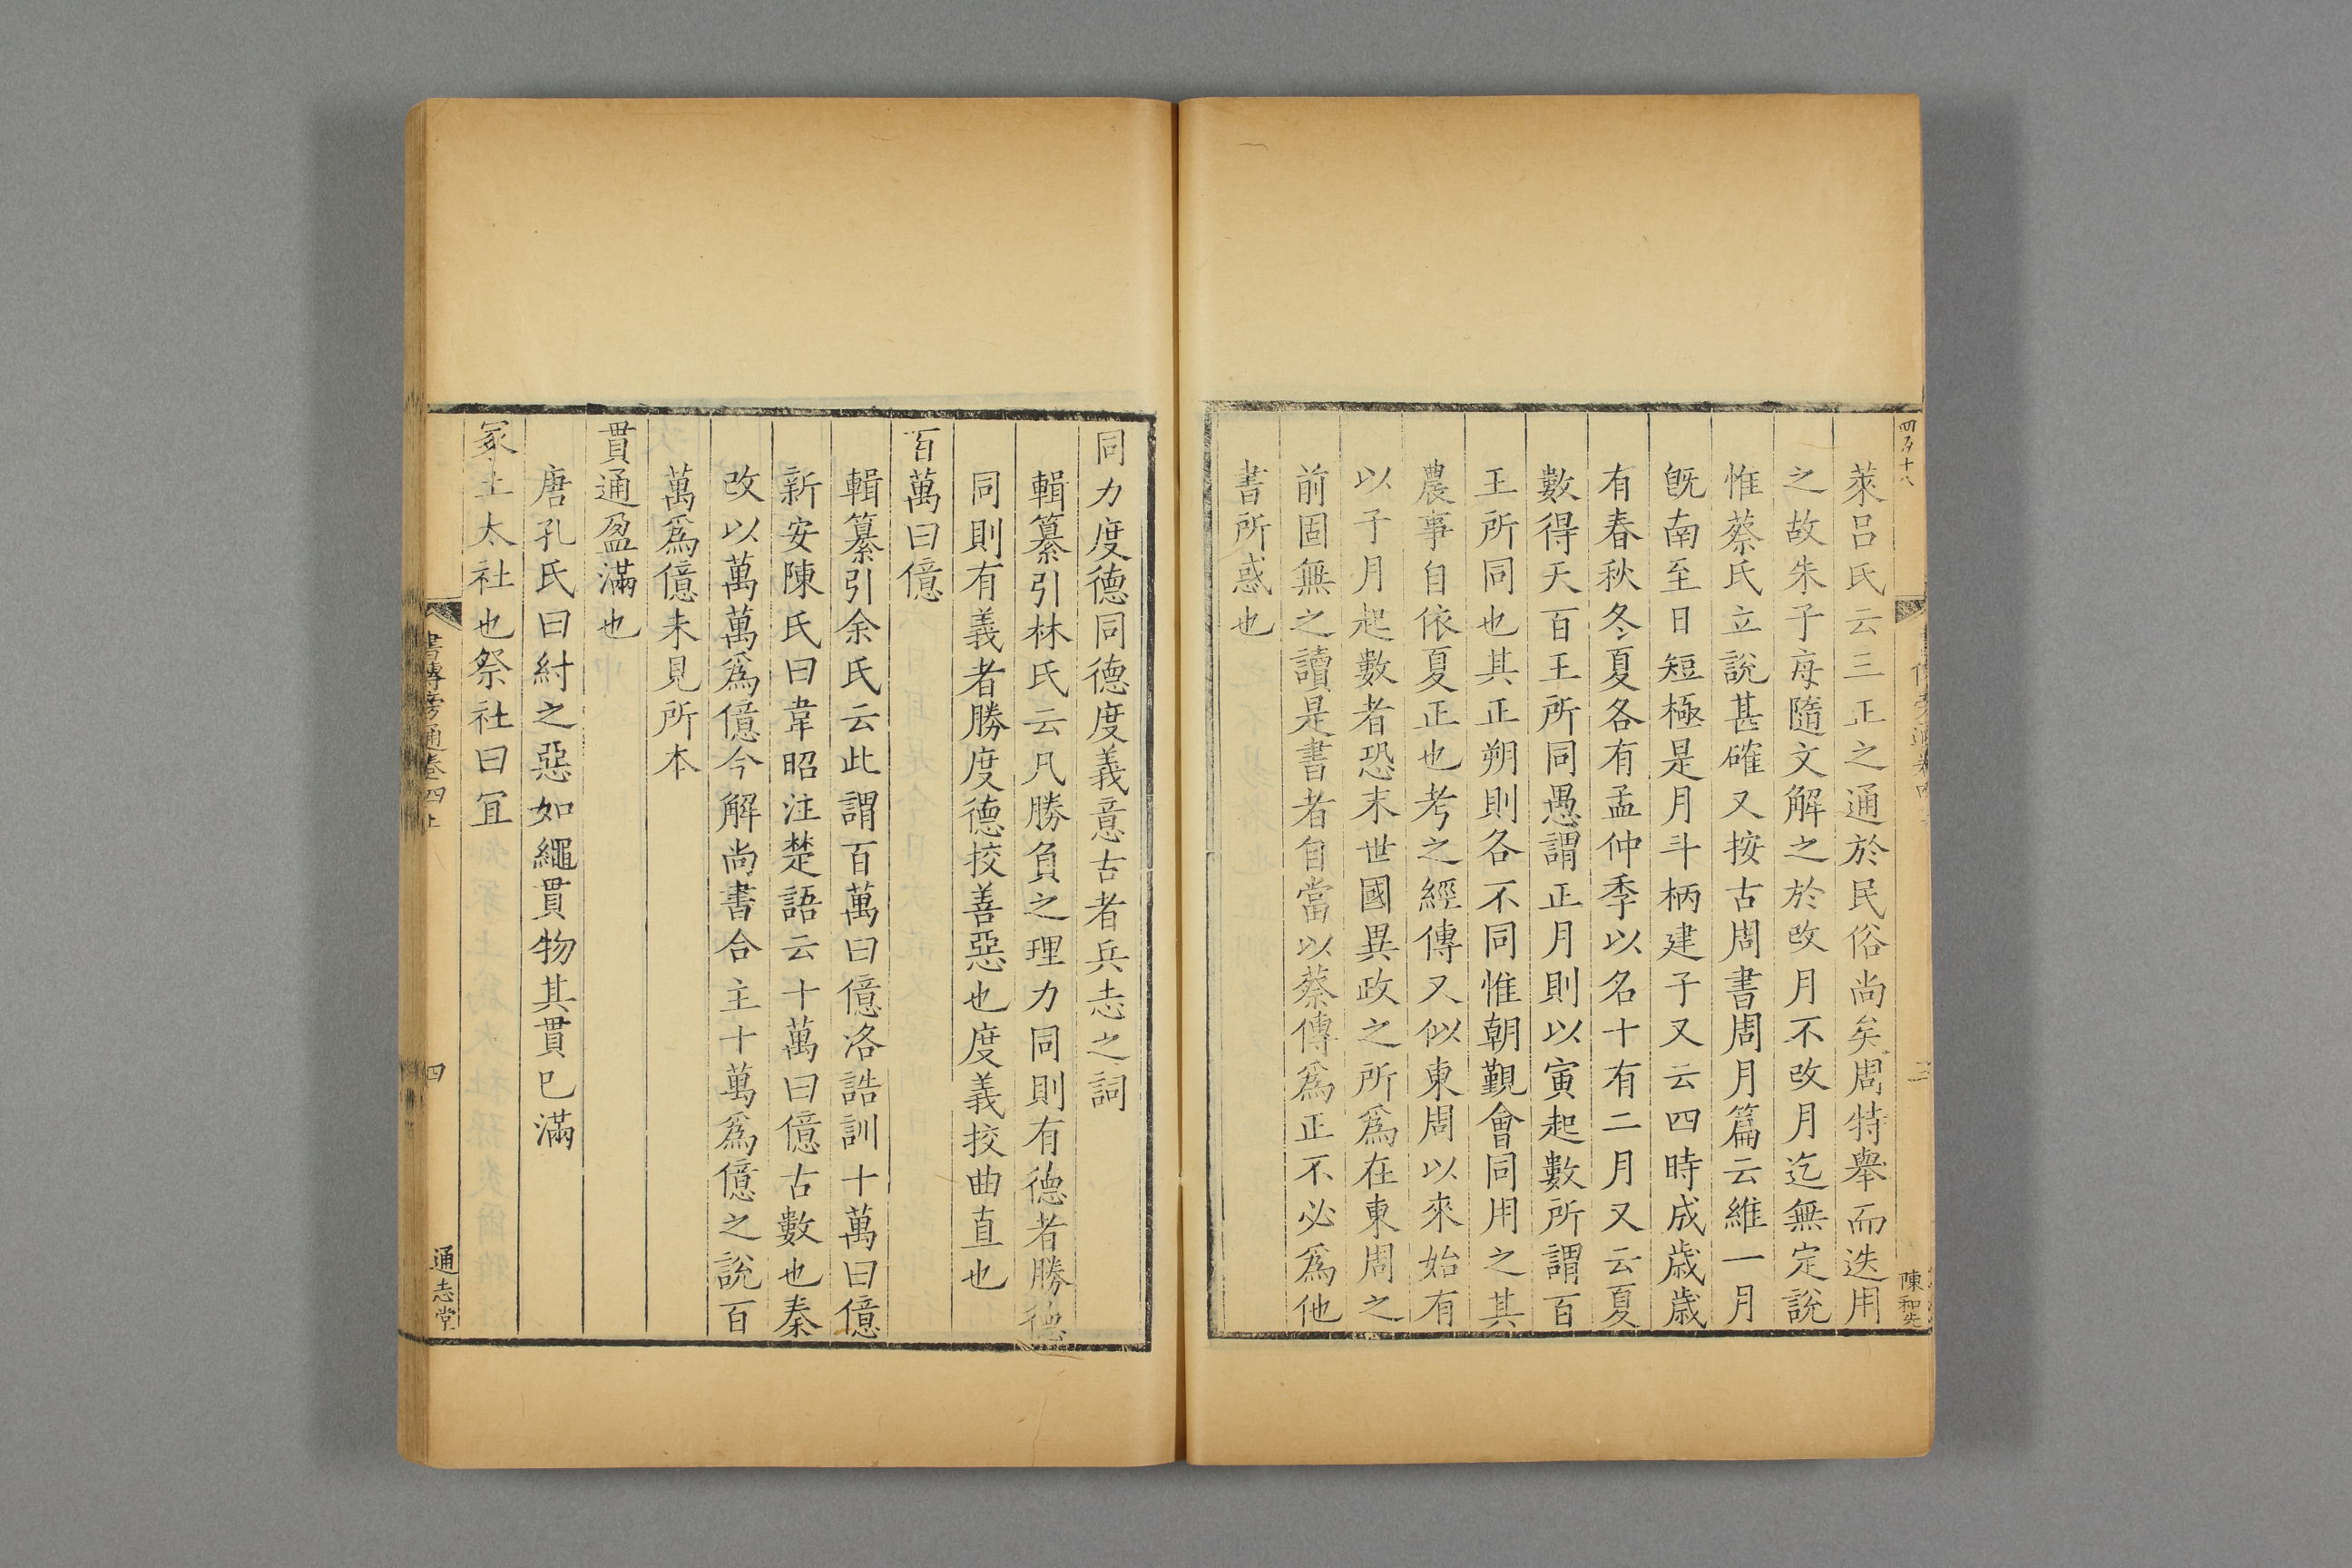 四百十八
萊呂氏云三正之通於民俗尚矣周特舉而迭用
之故朱子每隨文解之於改月不改月迄無定說
惟蔡氏立說甚確又按古周書周月篇云維一月
旣南至日短極是月斗柄建子又云四時成歲歲
有春秋冬夏各有孟仲季以名十有二月又云夏
數得天百王所同愚謂正月則以寅起數所謂百
王所同也其正朔則各不同惟朝覲會同用之其
農事自依夏正也考之經傳又似東周以來始有
以子月起數者恐末世國異政之所爲在東周之
前固無之讀是書者自當以蔡傳爲正不必爲他
書所惑也
陳和先
同力度德同德度義意古者兵志之詞
輯纂引林氏云凡勝負之理力同則有德者勝德
同則有義者勝度德挍善惡也度義挍曲直也
百萬曰億
輯纂引余氏云此謂百萬曰億洛誥訓十萬曰億
新安陳氏曰韋昭注楚語云十萬曰億古數也秦
改以萬萬爲億今解尚書合主十萬爲億之說百
萬爲億未見所本
貫通盈滿也
唐孔氏曰紂之惡如繩貫物其貫已滿
冢土太社也祭社曰宜
書傳旁通卷四上
四
通志堂